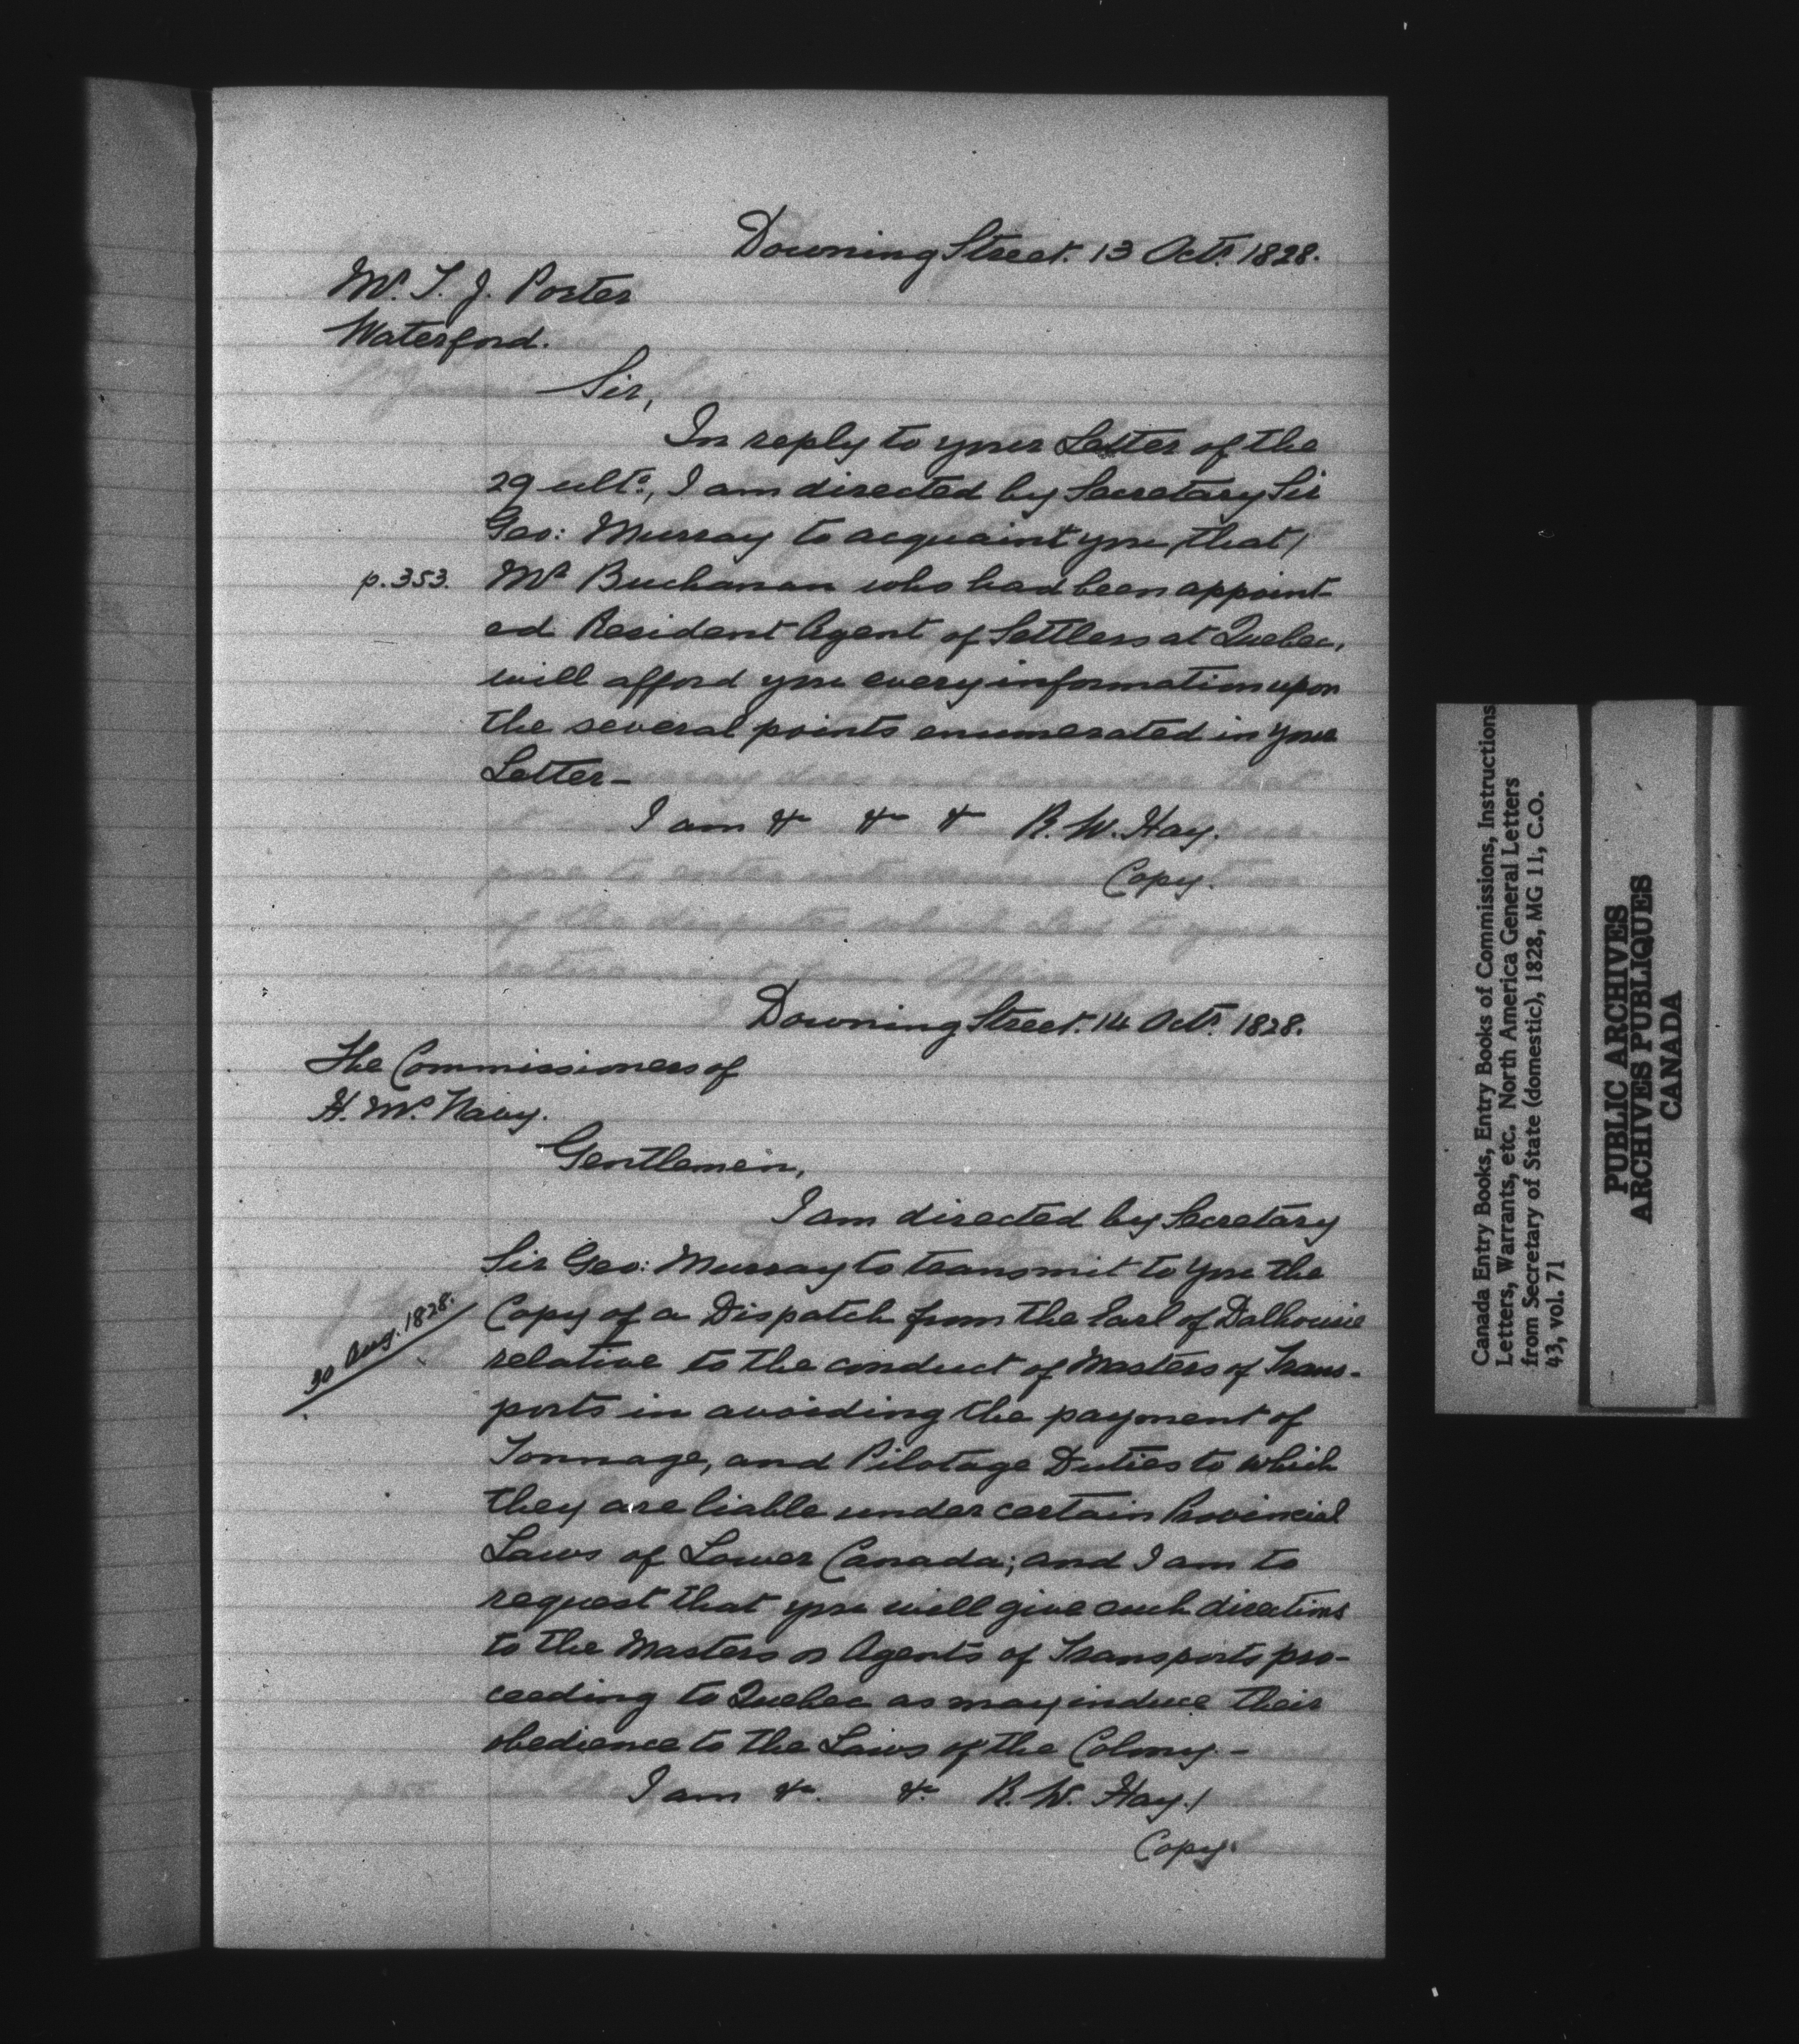 Downing Street. 13 Octr. 1828.
Mr. T. J. Porter
Waterford.
Sir,
In reply to your Letter of the
29 ulto., I am directed by Secretary Sir
Geo: Murray to acquaint you, that /
p. 353. Mr Buchanan who had been appoint-
ed Resident Agent of Settlers at Quebec,
will afford you every information upon
the several points enumerated in your
Letter -
I am &c &c & R. W. Hay.
Copy.
Downing Street. 14 Octr. 1828.
The Commissioners of
H. Ms. Navy.
Gentlemen,
I am directed by Secretary
Sir Geo: Murray to transmit to you the
30 Aug. 1828. Copy of a Dispatch from the Earl of Dalhousie
relative to the conduct of Masters of Trans-
ports in avoiding the payment of
Tonnage, and Pilotage Duties to which
they are liable under certain Provincial
Laws of Lower Canada; and I am to
request that you will give such directions
to the Masters or Agents of Transports pro-
ceeding to Quebec as may induce their
obedience to the Laws of the Colony. -
I am &c. &c. R. W. Hay. /
Copy.
Canada Entry Books, Entry Books of Commissions, Instructions
Letters, Warrants, etc. North America General Letters
from Secretary of State (domestic), 1828, MG 11, C.O.
43, vol. 71
PUBLIC ARCHIVES
ARCHIVES PUBLIQUES
CANADA